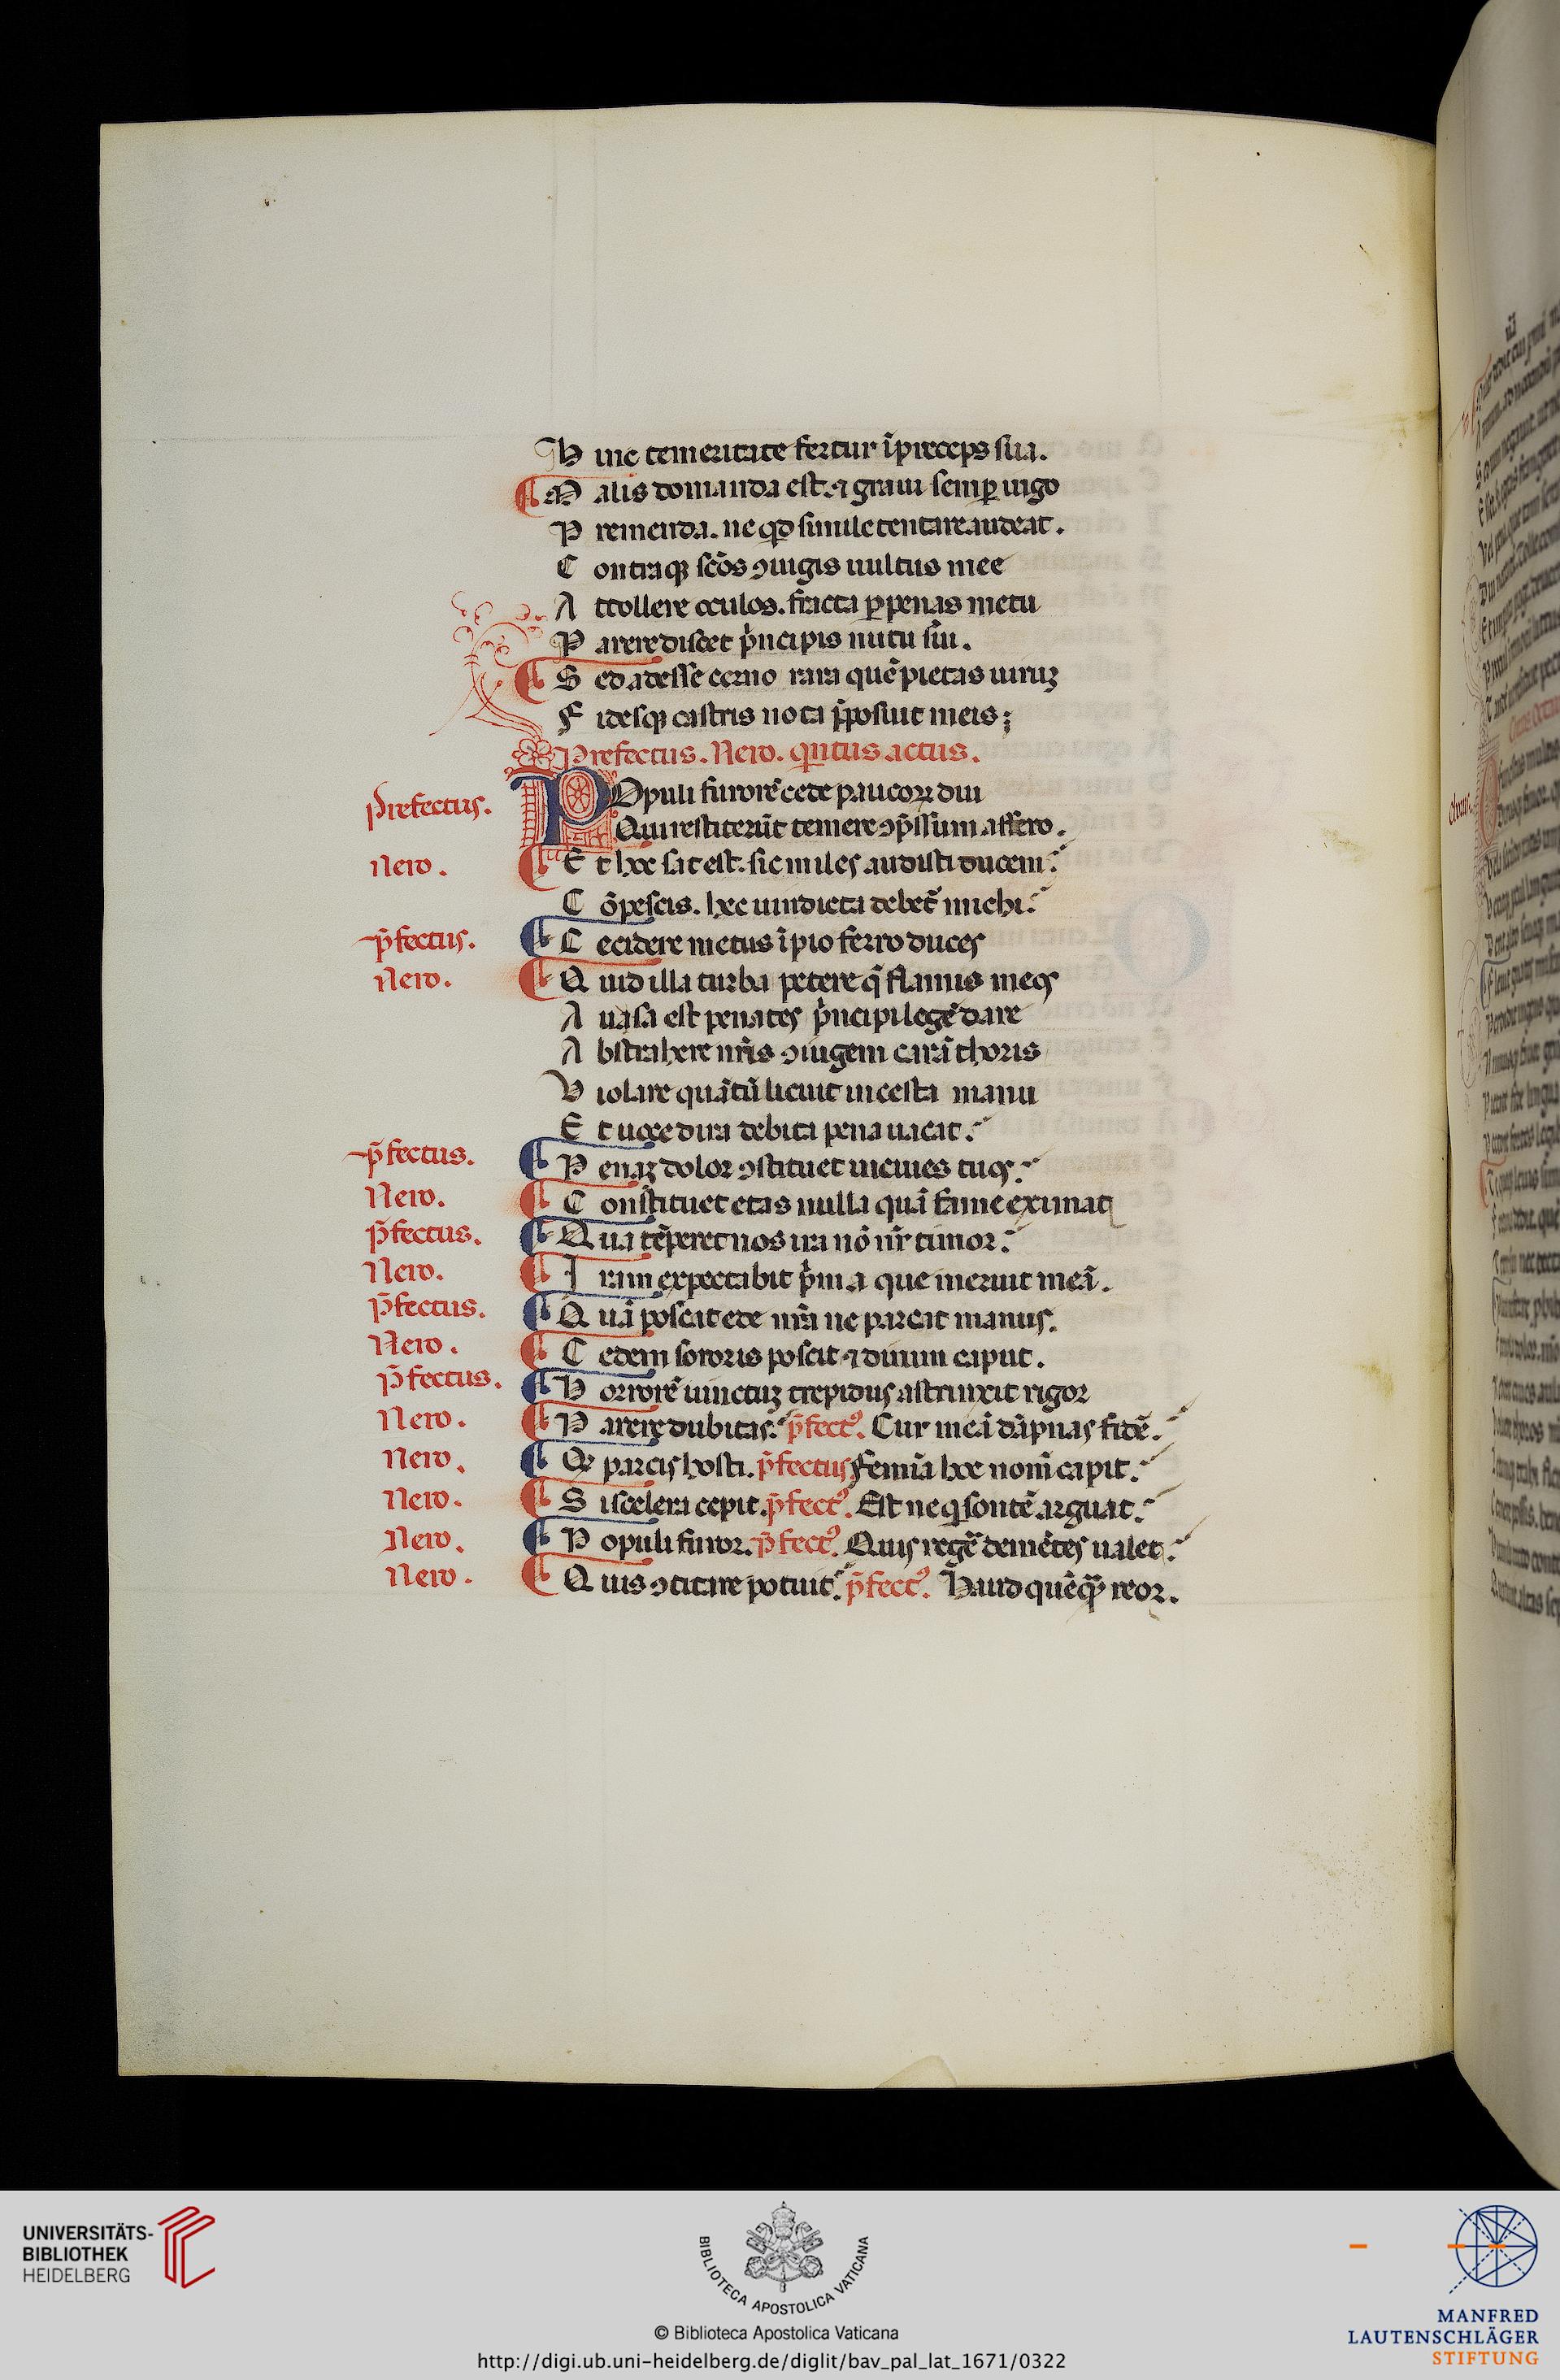 H inc temeritate fertur ĩpreceps sua.
M alis domanda est. ⁊ graui semꝑ iugo
P remenda. ne qͥd simile tentare audeat.
C ontraqꝫ sc̃os ꝯiugis uultus mee
A ttollere oculos. fracta ꝑ penas metu
P arere discet pͥncipis nutu sui.
S ed adesse cerno rara quẽ pietas uiruꝫ
F idesqꝫ castris nota p̃posuit meis;
Prefectus. Nero. qͥntus actus.
Prefectus. POpuli furorẽ cede paucoꝝ diu
Qui restiterũt temere ꝯp̃ssum affero.
Nero. E t hoc sat est. sic miles audisti ducem.
C õpescis. hec uindicta debet᷑ michi.
p̃fectus. C ecidere metus ĩpio ferro duces
Nero. Q uid illa turba petere q̃ flamis meos
A usa est penates pͥncipi legẽ dare
A bstrahere nr̃is ꝯiugem carã thoris
V iolare quãtũ licuit incesta manu
E t uoce dira debita pena uacat.
p̃fectus. P enaꝫ dolor ꝯstituet inciues tuos.
Nero. C onstituet etas nulla quã fame eximat
p̃fectus. Q ua tẽperet nos ira nõ nr̃ timor.
Nero. I ram expectabit pͥma que meruit meã.
p̃fectus. Q uã poscat ede nr̃a ne parcat manus.
Nero. C edem sororis poscit ⁊ dirum caput.
p̃fectus. H orrorẽ uinctuꝫ trepidus astrinxit rigor
Nero. P arere dubitas. p̃fectꝰ. Cur meã dãpnas fidẽ.
Nero. Qꝫ parcis hosti. p̃fectus Femĩa hoc nom̃ capit.
Nero. S i scelera cepit. p̃fectꝰ. Est ne qͥ sontẽ arguat.
Nero. P opuli furor. p̃fectꝰ. Quis regẽ demẽtes ualet.
Nero. Q uis ꝯcitare potuit. p̃fectꝰ. Haud quẽqͣꝫ reor.
UNIVERSITÄTS-
BIBLIOTHEK
HEIDELBERG
BIBLIOTECA APOSTOLICA VATICANA
© Biblioteca Apostolica Vaticana
http://digi.ub.uni-heidelberg.de/diglit/bav_pal_lat_1671/0322
MANFRED
LAUTENSCHLÄGER
STIFTUNG